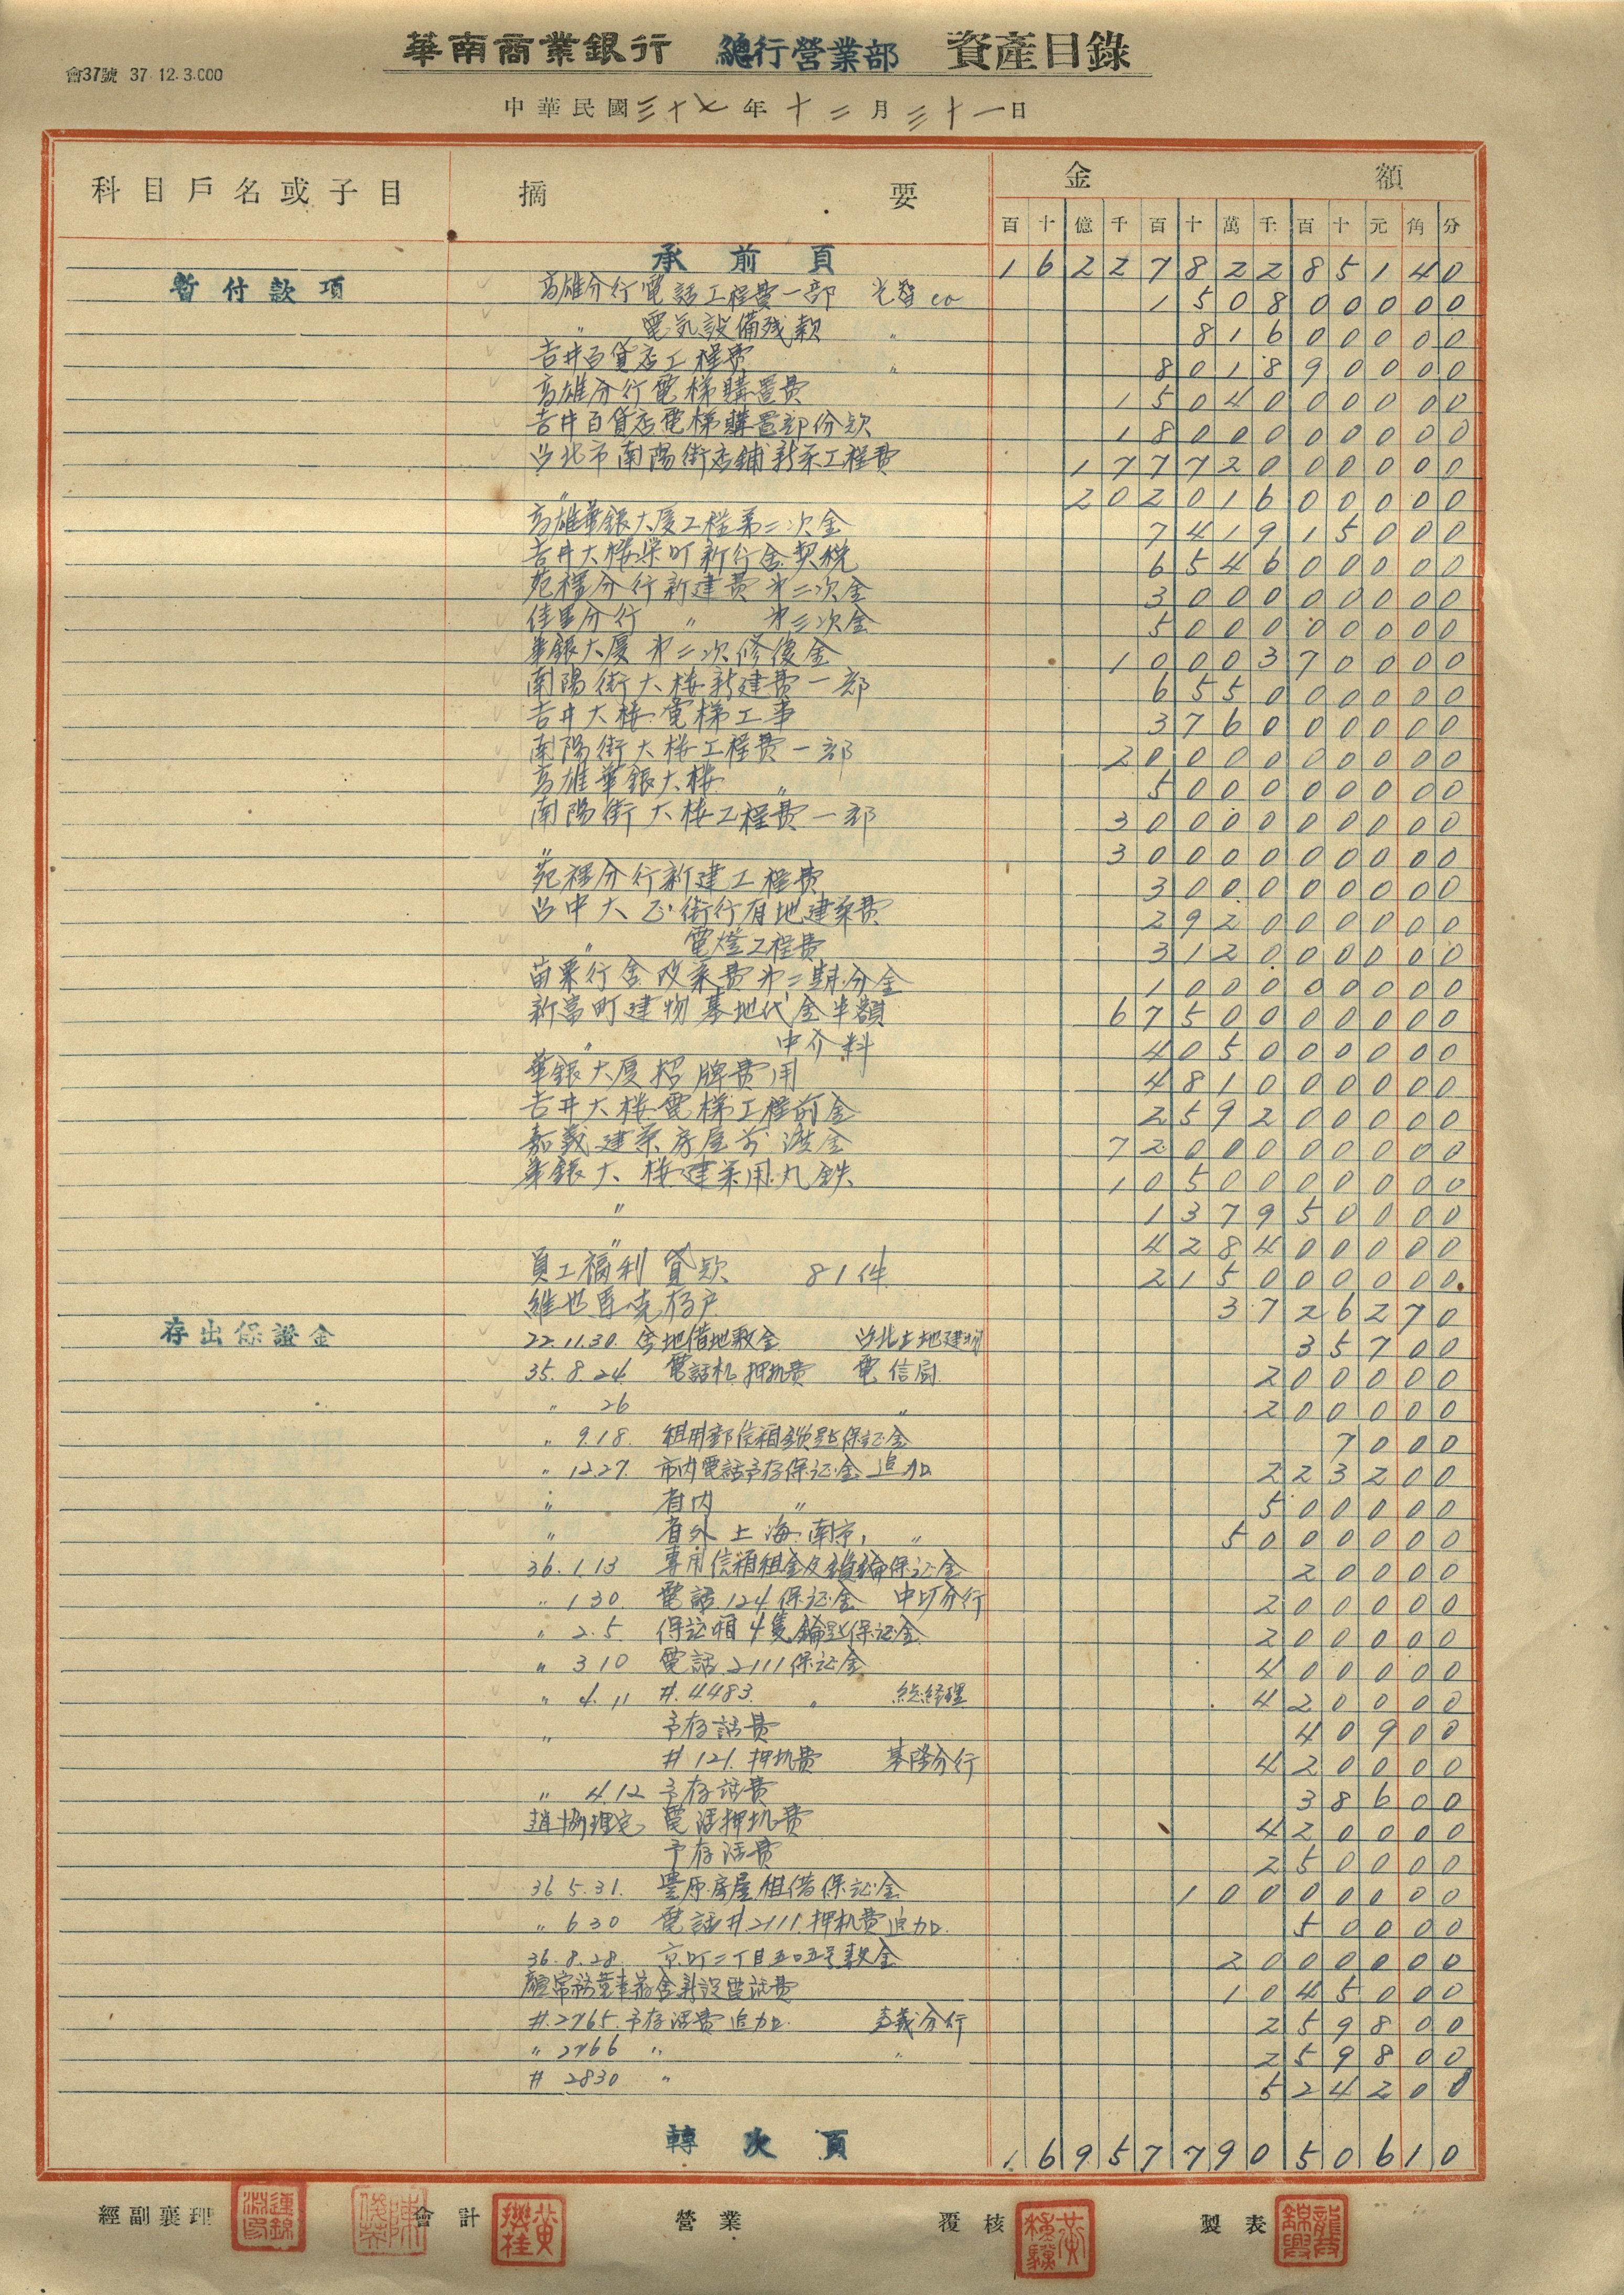 華南商業銀行 總行營業部 資產目錄
會37號 37.12.3.000
中華民國三十七年十二月三十一日
科目戶名或子目 摘要 金額
百 十 億 千 百 十 萬 千 百 十 元 角 分
承前頁 1622782285140
暫付款項 高雄分行電話工程費一部 150800000
〃 電気設備残款 〃 81600000
吉井百貨店工程費 〃 801890000
高雄分行電梯購置費 1504000000
吉井百貨店電梯購置部份款 1800000000
台北市南陽街店鋪新築工程費 17772000000
〃 20201600000
高雄華銀大廈工程第二次金 741915000
吉井大楼栄町新行舍契税 654600000
苑裡分行新建費第二次金 300000000
佳里分行 〃 第三次金 500000000
華銀大廈第二次修復金 1000370000
南陽街大楼新建費一部 655000000
吉井大楼電梯工事 376000000
南陽街大楼工程費一部 2000000000
高雄華銀大楼 〃 500000000
南陽街大楼工程費一部 3000000000
〃 3000000000
苑裡分行新建工程費 300000000
台中大正街行有地建築費 292000000
〃 電燈工程費 312000000
苗栗行舍改築費第二期分金 100000000
新富町建物基地代金半額 6750000000
〃 中介料 405000000
華銀大廈招牌費用 481000000
吉井大楼電梯工程前金 259200000
嘉義建築房屋前渡金 7200000000
華銀大楼建築用丸鉄 1050000000
〃 137950000
〃 428400000
員工福利貸款 81件 215000000
3726270
存出保證金 22.11.30. 舍地借地敷金 台北土地建物 35700
35.8.24. 電話机押机費 電信局 200000
〃 26 〃 200000
〃 9.18. 租用郵信箱鎖匙保証金 7000
〃 12.27. 市内電話予存保証金追加 223200
〃 省内 〃 50000
〃 省外上海.南京, 〃 500000
36.1.13 專用信箱租金及鎖鑰保証金 20000
〃 1.30. 電話124保証金 200000
〃 2.5. 保証箱4隻鑰匙保証金 200000
〃 3.10 電話2111保証金 400000
〃 4.11 #.4483. 〃 総経理 420000
〃 予存話費 40900
#121.押机費 基隆分行 420000
〃 4.12 予存話費 38600
趙協理宅 電話押机費 420000
予存話費 250000
36 5.31. 豊原房屋租借保証金 10000000
〃 6.30 電話#2111.押机費追加. 50000
36.8.28. 京町二丁目五ロ五号敷金 2000000
1045000
#.2765.予存話費追加. 嘉義分行 259800
〃 2766 〃 〃 259800
# 2830 〃 524200
轉次頁 1695779050610
經副襄理 會計 營業 覆核 製表